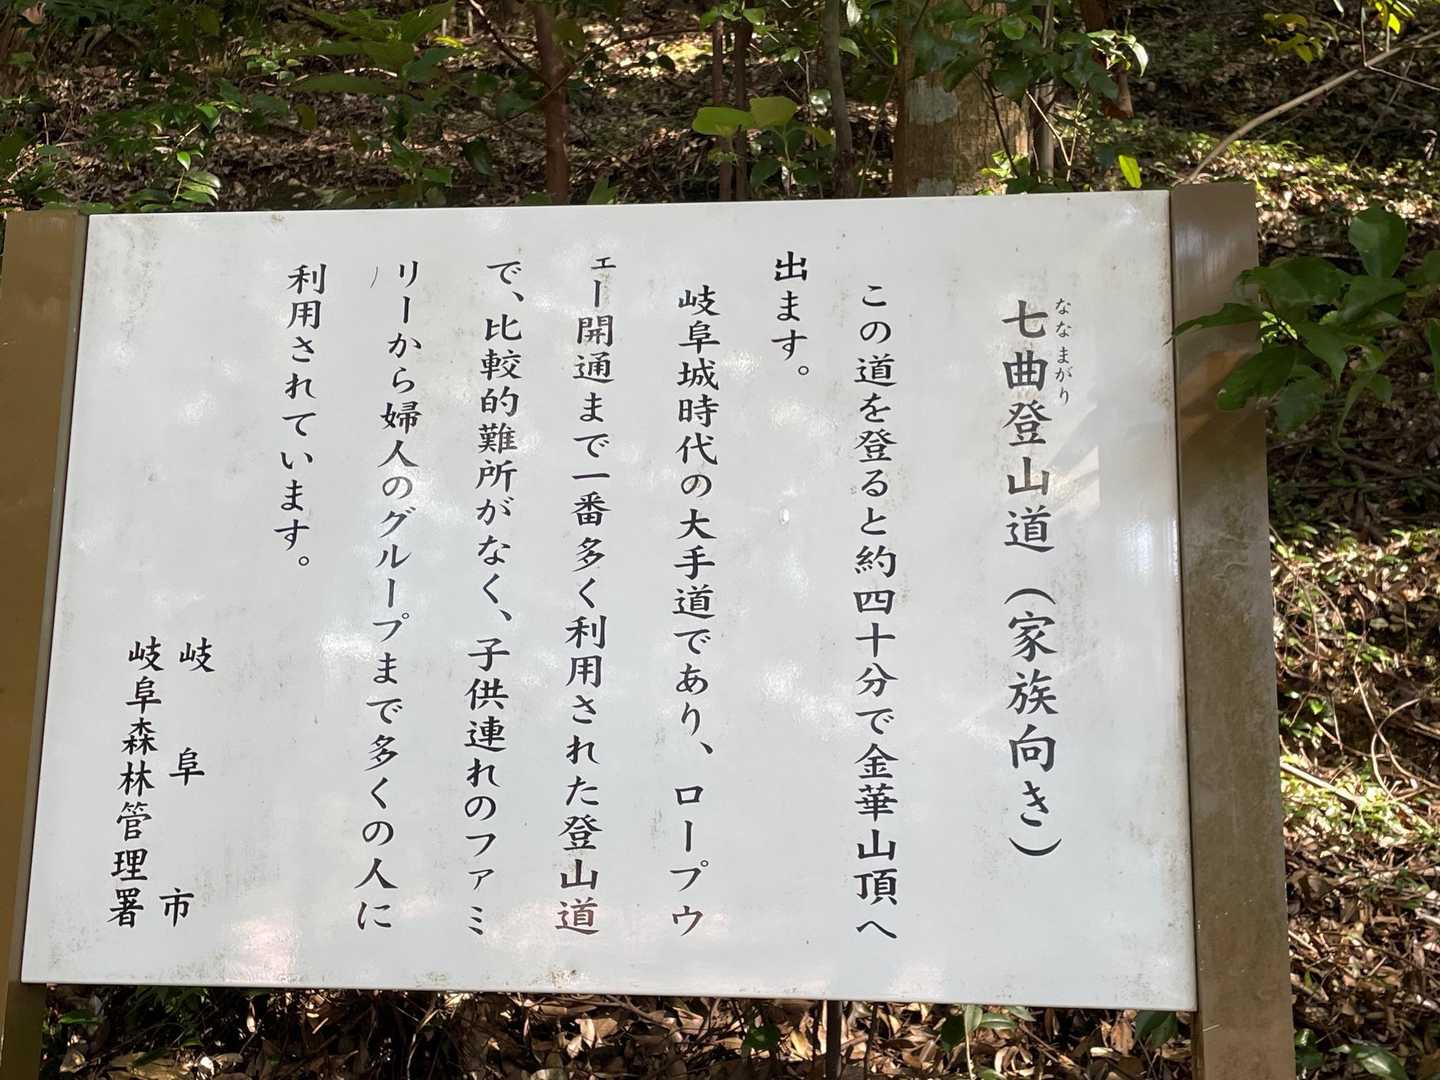 ななまがり
七曲登山道(家族向き)
この道を登ると約四十分で金華山頂へ
出ます。
岐阜城時代の大手道であり、ロープウ
ェー開通まで一番多く利用された登山道
で、比較的難所がなく、子供連れのファミ
リーから婦人のグループまで多くの人に
利用されています。
岐阜市
岐阜森林管理署